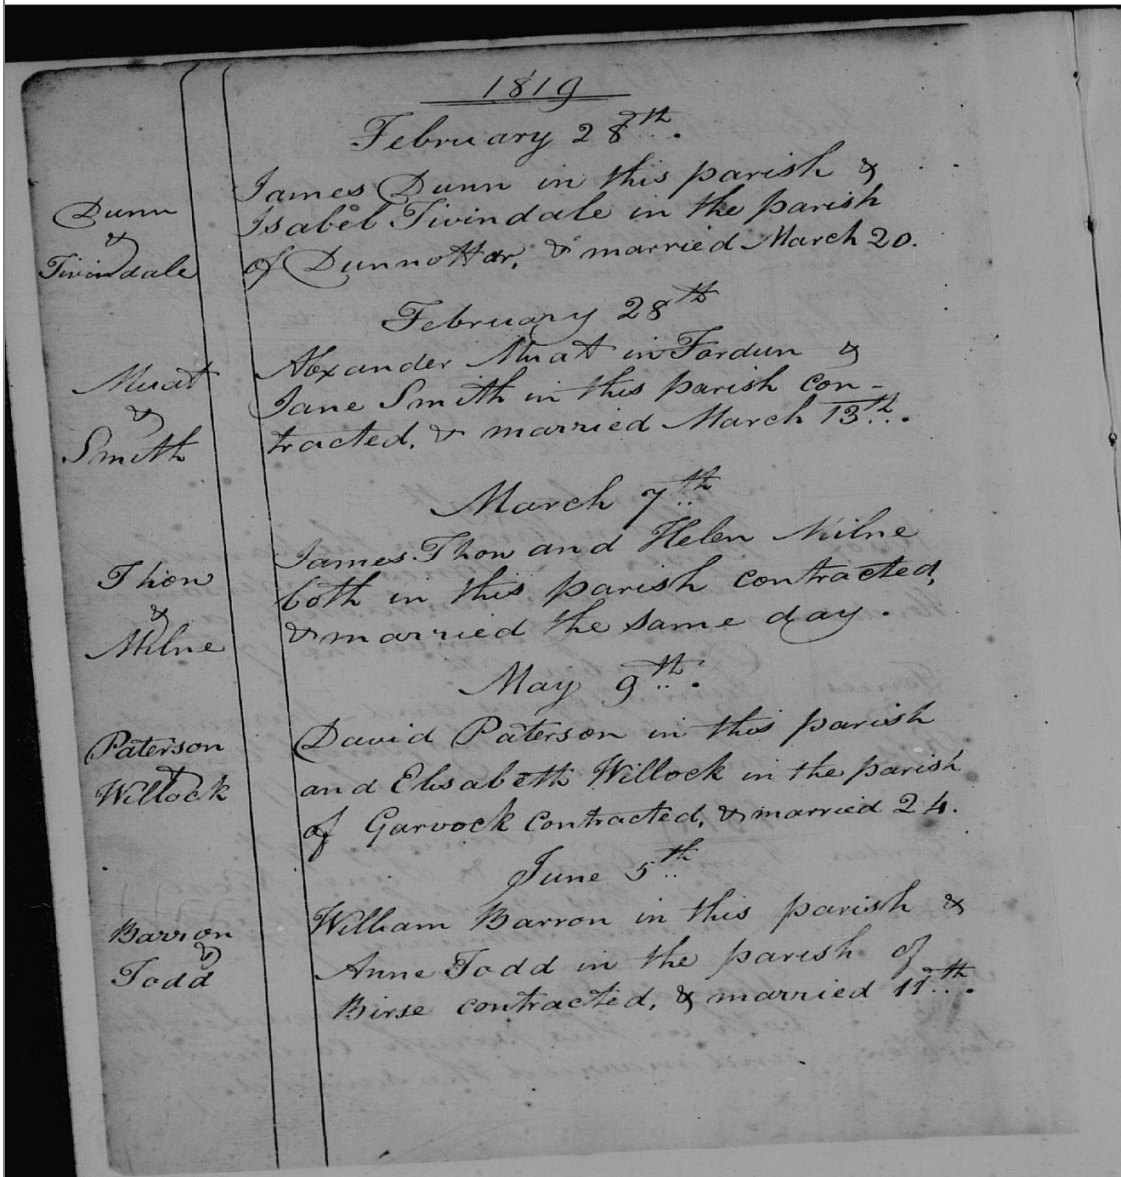 1819
February 28th.
Dunn
&
Tivindale
James Dunn in this parish &
Isabel Tivindale in the parish
of Dunnottar, & married March 20.
February 28th
Muat
&
Smith
Alexander Muat in Fordun &
Jane Smith in this parish con-
tracted, & married March 13th.
March 7th
Thon
&
Milne
James Thon and Helen Milne
both in this parish contracted,
& married the same day.
May 9th.
Paterson
&
Willock
David Paterson in this parish
and Elisabeth Willock in the parish
of Garvock contracted, & married 24.
June 5th
Barron
&
Todd
William Barron in this parish &
Anne Todd in the parish of
Birse contracted, & married 11th.